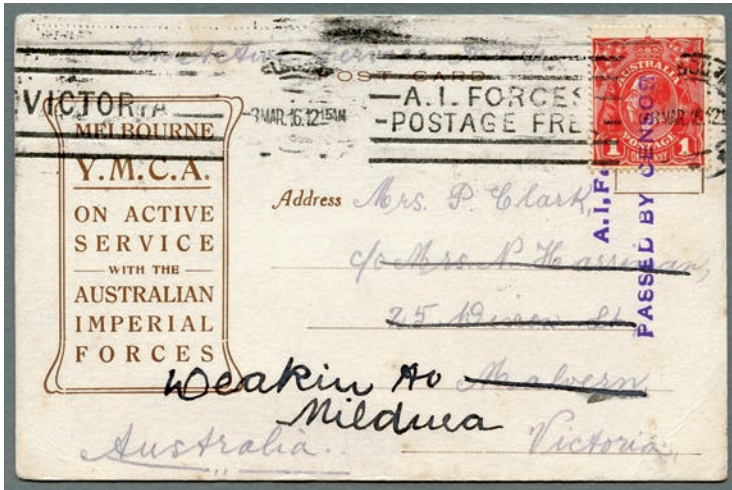 On Active Service
POST CARD
VICTORIA
3 MAR. 16. 12 15AM
A.I. FORCES
POSTAGE FREE
AUSTRALIA
POSTAGE
1 1
ONE PENNY
MELBOURNE
Y.M.C.A.
ON ACTIVE
SERVICE
WITH THE
AUSTRALIAN
IMPERIAL
FORCES
A.I.F.
PASSED BY CENSOR
Address Mrs. P. Clark,
c/o Mrs. N. Harriman,
25 St.
Malvern
Mildura
Victoria.
Australia.